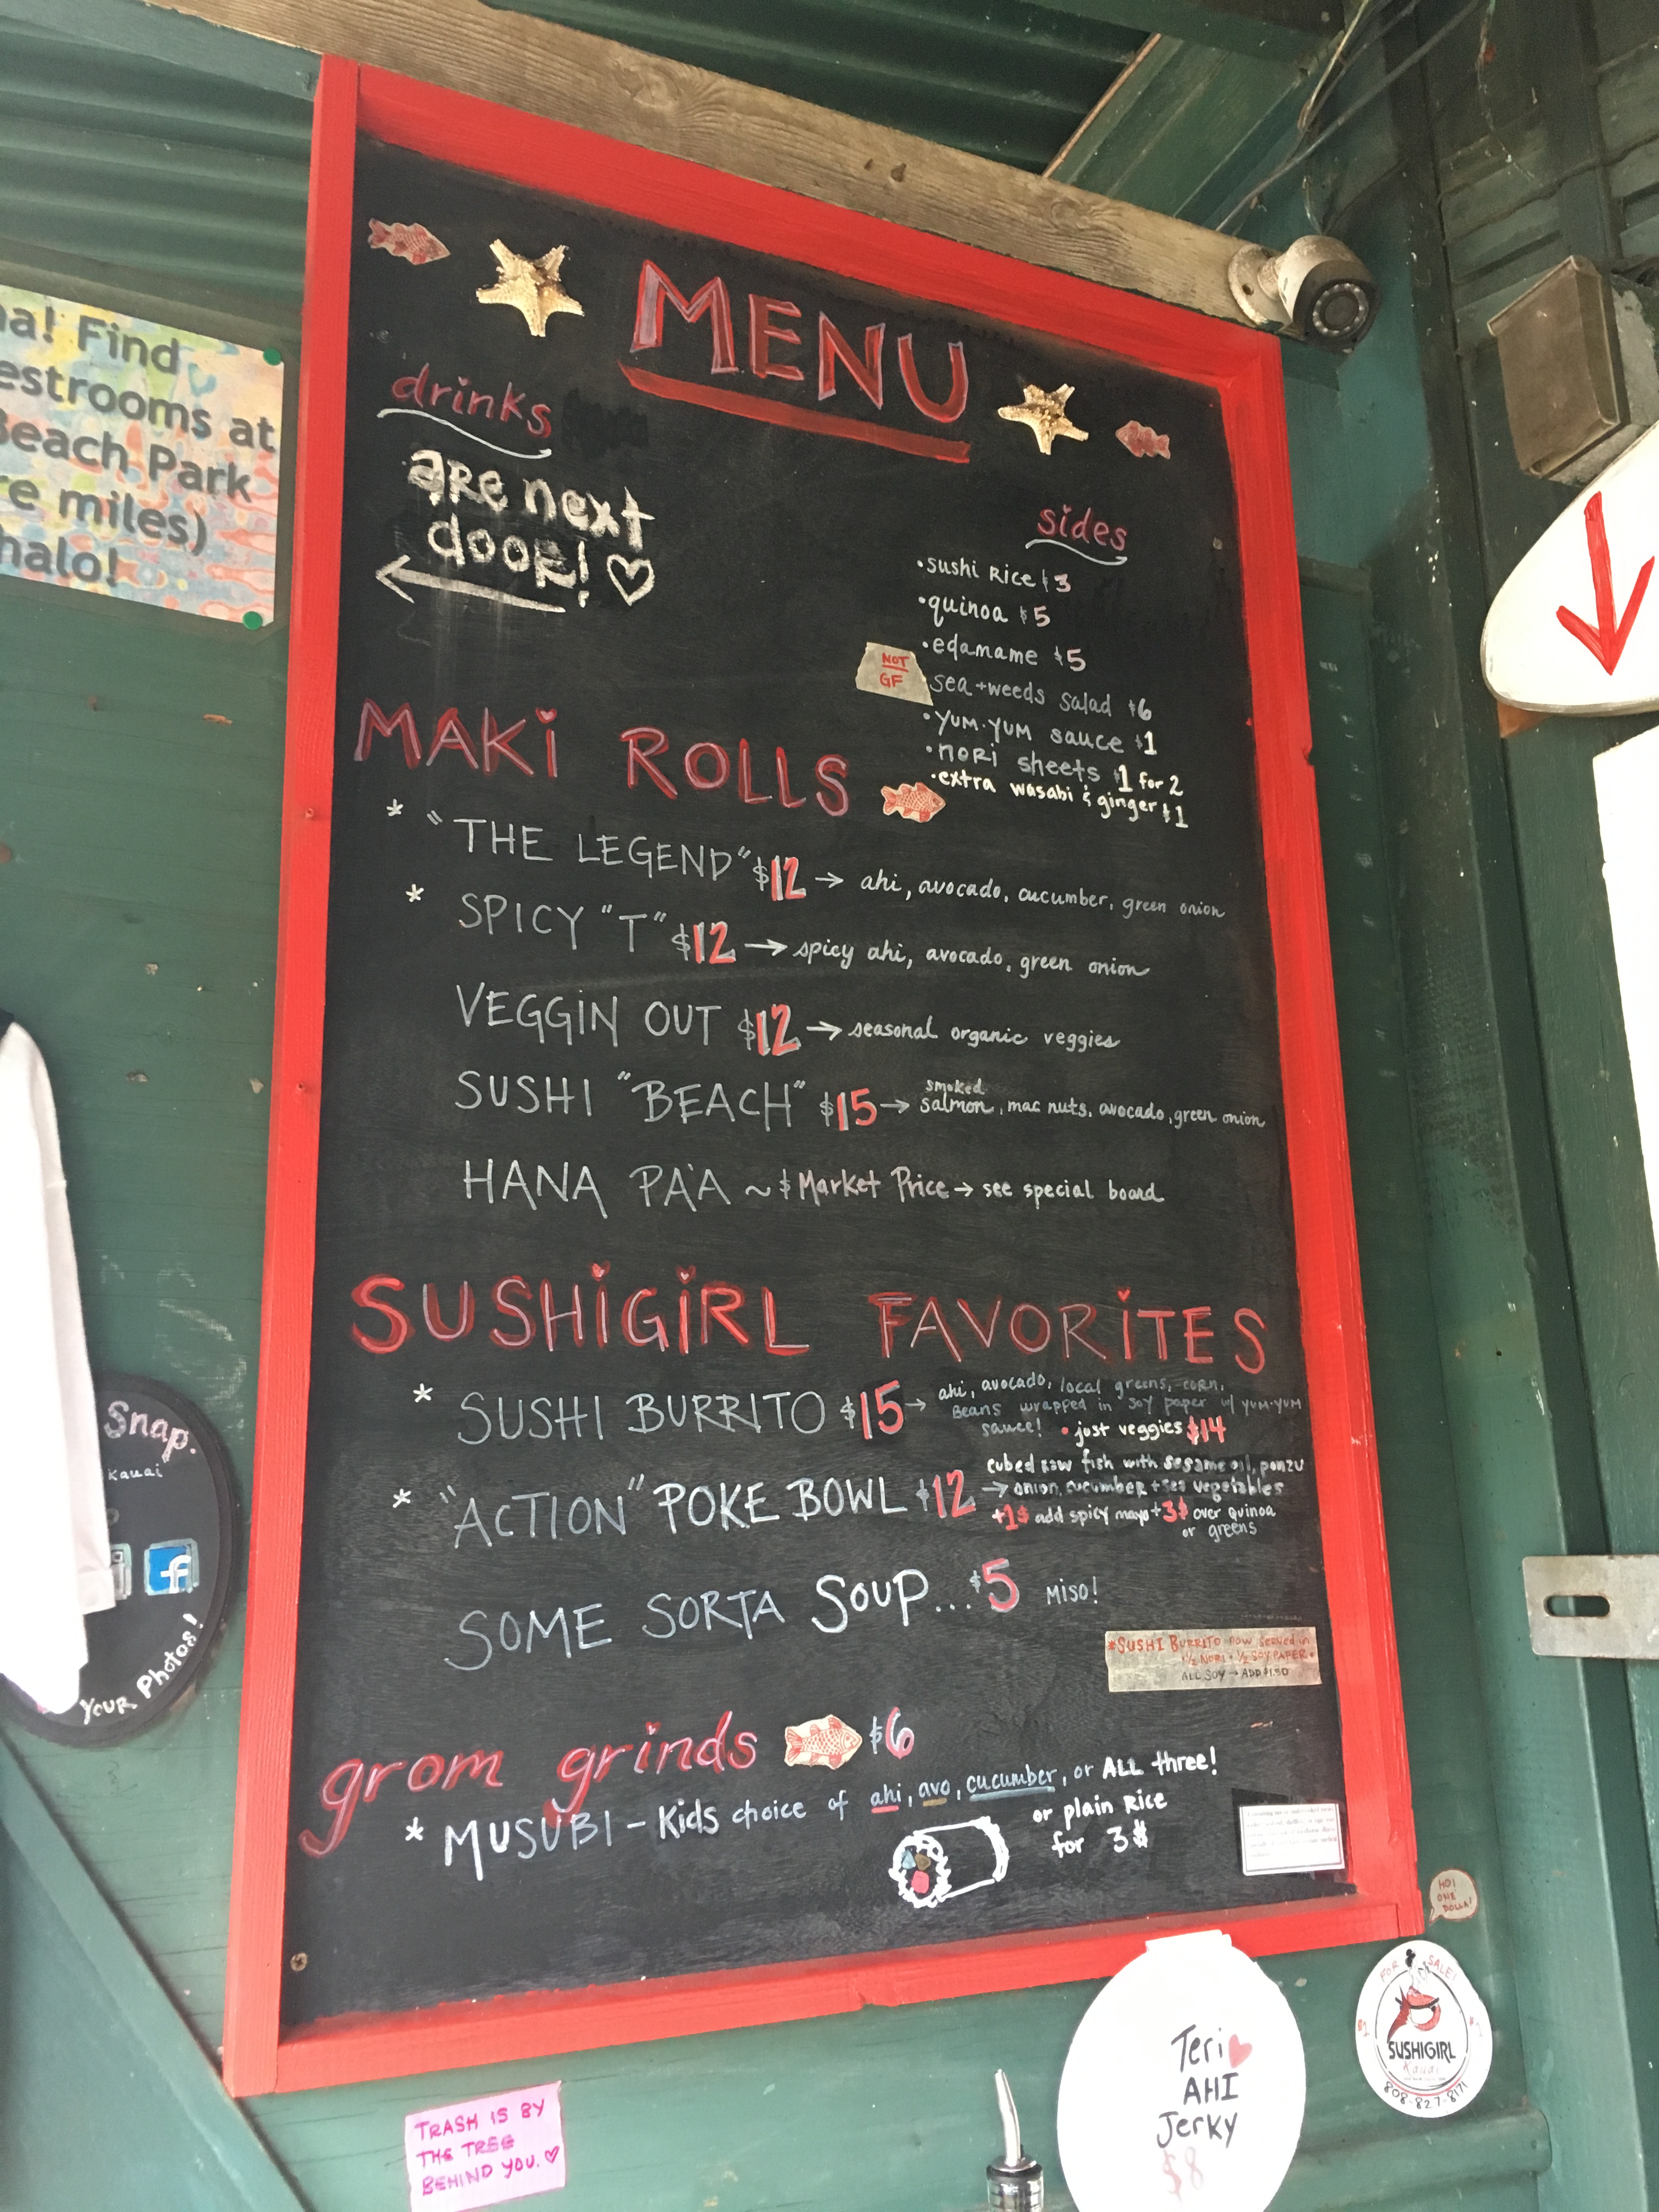 a! Find
estrooms at
Beach Park
re miles)
halo!
MENU
drinks
are next
door!
sides
•sushi Rice $3
•quinoa $5
•edamame $5
NOT
GF
•sea+weeds salad $6
•YUM•YUM sauce $1
•nori sheets $1 for 2
•extra wasabi & ginger $1
MAKi ROLLS
* "THE LEGEND" $12 → ahi, avocado, cucumber, green onion
* SPICY "T" $12 → spicy ahi, avocado, green onion
VEGGiN OUT $12 → seasonal organic veggies
SUSHI "BEACH" $15 → smoked salmon, mac nuts, avocado, green onion
HANA PA'A ~ $ Market Price → see special board
SUSHiGiRL FAVORiTES
* SUSHI BURRITO $15 → ahi, avocado, local greens, corn,
Beans wrapped in soy paper w/ YUM•YUM
sauce! • just veggies $14
* "ACTION" POKE BOWL $12 → cubed raw fish with sesame oil, ponzu
onion, cucumber + sea vegetables
+1$ add spicy mayo +3$ over quinoa
or greens
SOME SORTA SOUP... $5 Miso!
*SUSHI BURRITO now served in
•½ NORI • ½ SOY PAPER•
ALL SOY → ADD $1.50
grom grinds $6
* MUSUBI - Kids choice of ahi, avo, cucumber, or ALL three!
or plain Rice
for 3$
Snap.
Kauai
f
Your Photos!
HO!
ONE
DOLLA!
FOR SALE!
$1
SUSHIGIRL
Kauai
808-827-8171
Teri
AHI
Jerky
$8
TRASH IS BY
THE TREE
BEHIND YOU.